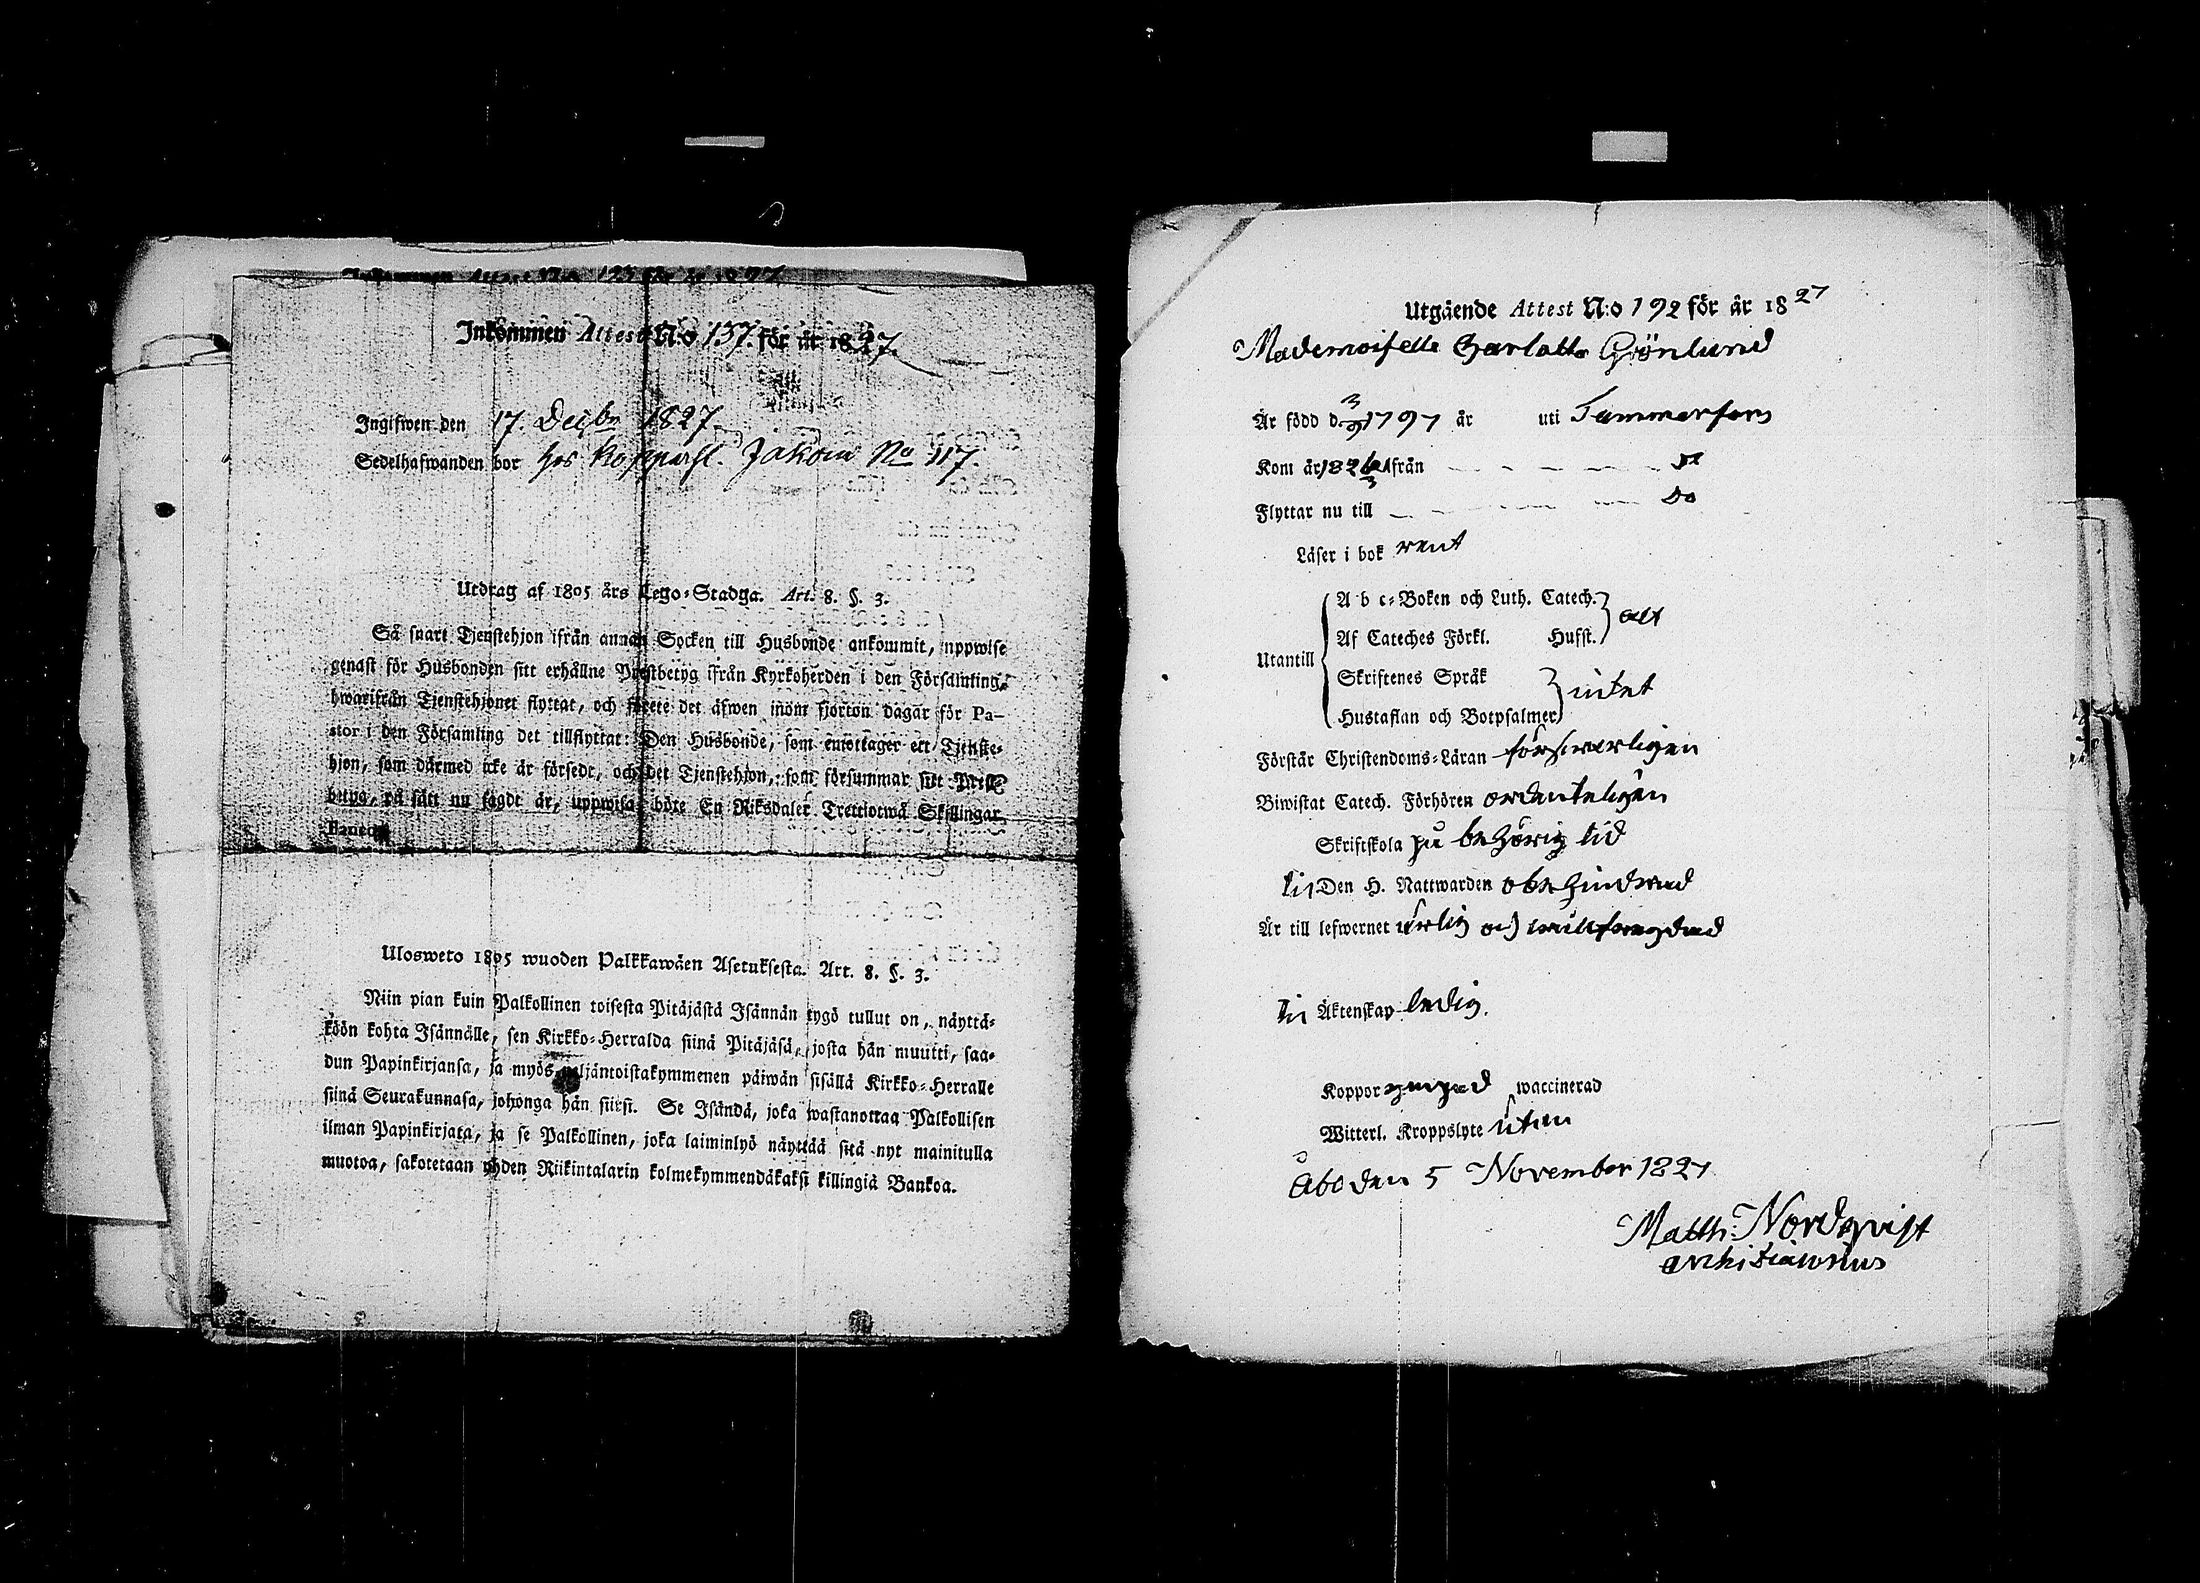 Inkommen Attest N:o 123 för år 1827
Inkommen Attest N:o 137. för år 1827.
Ingifwen den 17. Decbr 1827.
Sedelhafwanden bor hos Kopparsl. Jakow No 117.
Utdrag af 1805 års Lego-Stadga. Art. 8. §. 3.
Så snart Tjenstehjon ifrån annan Socken till Husbonde ankommit, uppwise
genast för Husbonden sitt erhållne Prestbetyg ifrån Kyrkoherden i den Församling,
hwarifrån Tjenstehjonet flyttat, och förete det äfwen inom fjorton dagar för Pa-
stor i den Församling det tillflyttat: Den Husbonde, som emottager ett Tjenste-
hjon, som därmed icke är försedt, och det Tjenstehjon, som försummar sitt Prest-
betyg, på sätt nu sagdt är, uppwisa, böte En Riksdaler Trettiotwå Skillingar
Banco.
Ulosweto 1805 wuoden Palkkawäen Asetuksesta. Art. 8. §. 3.
Niin pian kuin Palkollinen toisesta Pitäjästä Isännän tygö tullut on, näyttä-
köön kohta Isännälle, sen Kirkko-Herralda siinä Pitäjäsä, josta hän muutti, saa-
dun Papinkirjansa, ja myös neljäntoistakymmenen päiwän sisällä Kirkko-Herralle
siinä Seurakunnasa, johonga hän siirsi. Se Isändä, joka wastanottaa Palkollisen
ilman Papinkirjata, ja se Palkollinen, joka laiminlyö näyttää sitä nyt mainitulla
muotoa, sakotetaan yhden Riikintalarin kolmekymmendäkaksi killingiä Bankoa.
Utgående Attest N:o 192 för år 1827
Mademoiselle Carlotta Grönlund
Är född d. 3/9 1797 år uti Tammerfors
Kom år 1826 ifrån — — — — do
Flyttar nu till — — — — do
Läser i bok rent
Utantill
A b c-Boken och Luth. Catech.
Af Cateches Förkl. Husf. } alt
Skriftenes Språk
Hustaflan och Botpsalmer } intet
Förstår Christendoms-Läran försvarligen
Biwistat Catech. Förhören ordenteligen
Skriftskola på behörig tid
till Den H. Nattwarden obehindrad
Är till lefwernet ärlig och wälfrägdad
till Äktenskap ledig.
Koppor ympad waccinerad
Witterl. Kroppslyte utan
Åbo den 5 November 1827
Matth: Nordqvist
Archidiaconus